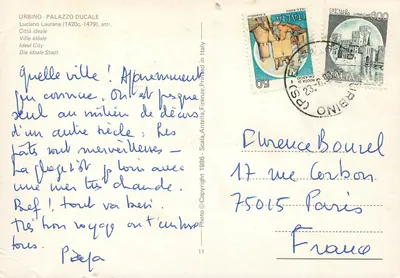 URBINO - PALAZZO DUCALE
Luciano Laurana (1420c. - 1479), attr.
Città ideale
Ville idéale
Ideal City
Die ideale Stadt
Quelle ville !
peu connue, on est presque
seul au milieu de décors
d'un autre siècle ; les
pâtes sont merveilleuses -
La plage est loin avec
une mer très chaude.
Bref ! tout va bien.
très bon voyage
tous.
Photo © Copyright 1986 - Scala, Antella, Firenze, Printed in Italy
11
50
400
URBINO (PS)
Florence Bourel
17 rue Corbon
75015 Paris
France